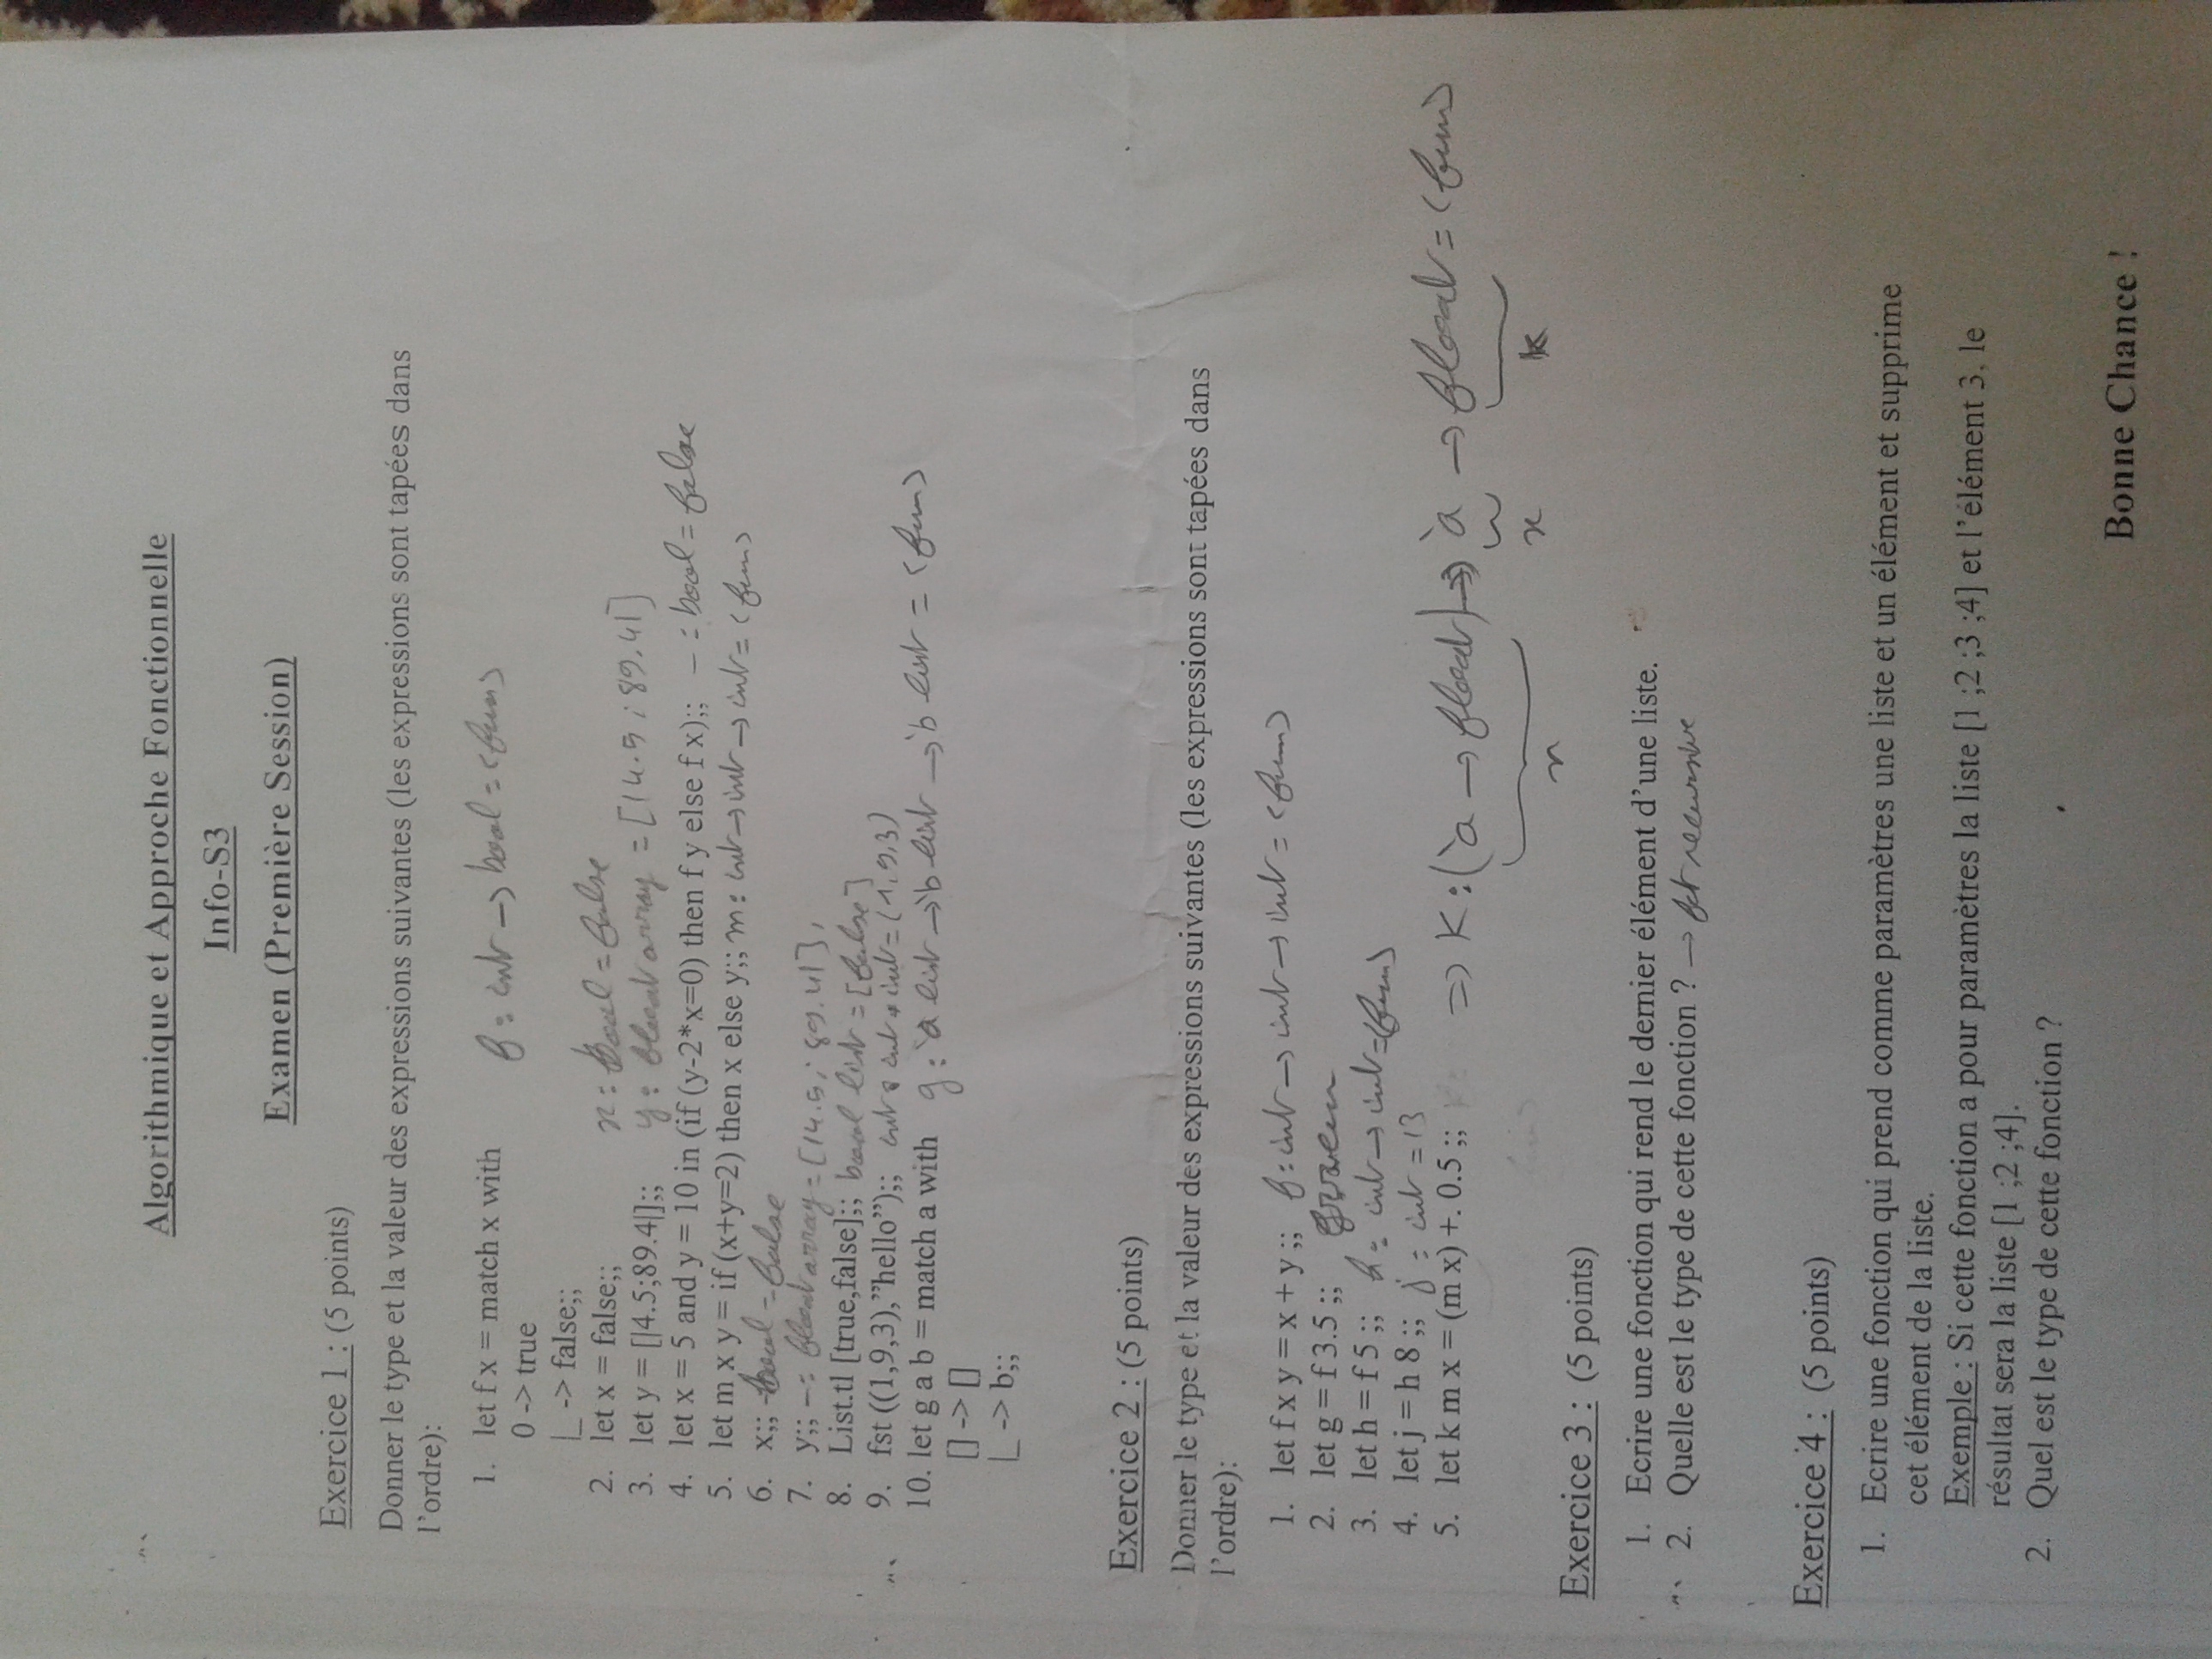 Algorithmique et Approche Fonctionnelle
Info-S3
Examen (Première Session)
Exercice 1 : (5 points)
Donner le type et la valeur des expressions suivantes (les expressions sont tapées dans
l'ordre):
1. let f x = match x with f : int -> bool = <fun>
0 -> true
|_ -> false;;
2. let x = false;; x : bool = false
3. let y = [|4.5;89.4|];; y : float array = [|4.5 ; 89.4|]
4. let x = 5 and y = 10 in (if (y-2*x=0) then f y else f x);; - : bool = false
5. let m x y = if (x+y=2) then x else y;; m : int -> int -> int = <fun>
6. x;; - bool = false
7. y;; - : float array = [|4.5 ; 89.4|],
8. List.tl [true,false];; bool list = [false]
9. fst ((1,9,3),"hello");; int * int * int = (1,9,3)
10. let g a b = match a with g : 'a list -> 'b list -> 'b list = <fun>
[] -> []
|_ -> b;;
Exercice 2 : (5 points)
Donner le type et la valeur des expressions suivantes (les expressions sont tapées dans
l'ordre):
1. let f x y = x + y ;; f : int -> int -> int = <fun>
2. let g = f 3.5 ;;
3. let h = f 5 ;; h : int -> int = <fun>
4. let j = h 8 ;; j : int = 13
5. let k m x = (m x) +. 0.5 ;; => K : ('a -> float) -> 'a -> float = <fun>
n x k
Exercice 3 : (5 points)
1. Ecrire une fonction qui rend le dernier élément d'une liste.
2. Quelle est le type de cette fonction ? -> fct recursive
Exercice 4 : (5 points)
1. Ecrire une fonction qui prend comme paramètres une liste et un élément et supprime
cet élément de la liste.
Exemple : Si cette fonction a pour paramètres la liste [1 ;2 ;3 ;4] et l'élément 3, le
résultat sera la liste [1 ;2 ;4].
2. Quel est le type de cette fonction ?
Bonne Chance !